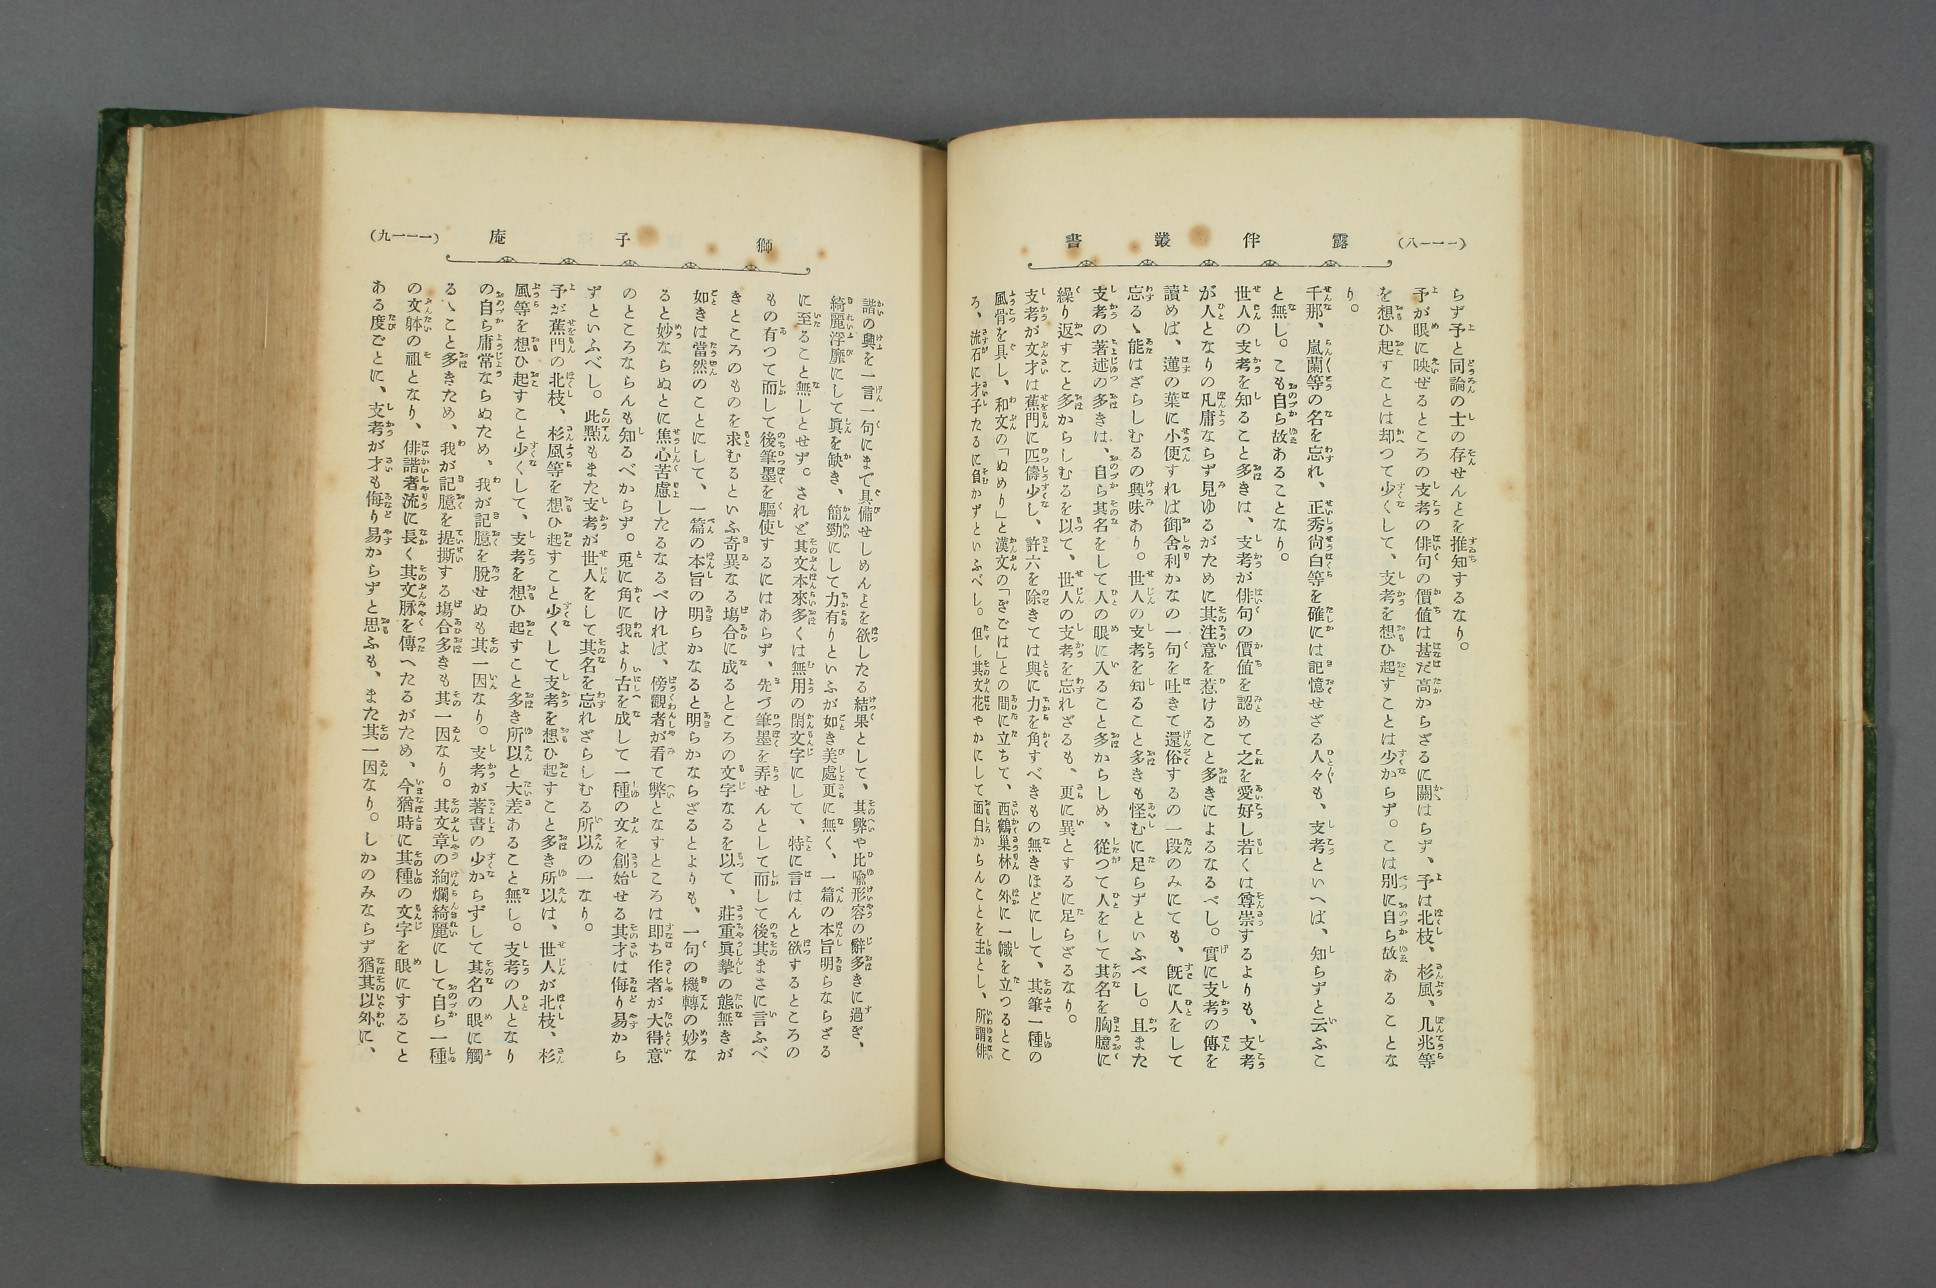 (一一一八)
露伴叢書
らず予と同論の士の存せんとを推知するなり。
予が眼に映ぜるところの支考の俳句の價値は甚だ高からざるに關はらず、予は北枝、杉風、凡兆等
を想ひ起すことは却つて少くして、支考を想ひ起すことは少からず。こは別に自ら故あることな
り。
千那、嵐蘭等の名を忘れ、正秀尙白等を確には記憶せざる人々も、支考といへば、知らずと云ふこ
と無し。こも自ら故あることなり。
世人の支考を知ること多きは、支考が俳句の價値を認めて之を愛好し若くは尊崇するよりも、支考
が人となりの凡庸ならず見ゆるがために其注意を惹けること多きによるなるべし。實に支考の傳を
讀めば、蓮の葉に小便すれば御舍利かなの一句を吐きて還俗するの一段のみにても、旣に人をして
忘るゝ能はざらしむるの興味あり。世人の支考を知ること多きも怪むに足らずといふべし。且また
支考の著述の多きは、自ら其名をして人の眼に入ること多からしめ、從つて人をして其名を胸臆に
繰り返すこと多からしむるを以て、世人の支考を忘れざるも、更に異とするに足らざるなり。
支考が文才は蕉門に匹儔少し、許六を除きては與に力を角すべきもの無きほどにして、其筆一種の
風骨を具し、和文の「ぬめり」と漢文の「ぎごは」との間に立ちて、西鶴巢林の外に一幟を立つるとこ
ろ、流石に才子たるに負かずといふべし。但し其文花やかにして面白からんことを主とし、所謂俳
(一一一九)
獅子庵
諧の興を一言一句にまで具備せしめんよを欲したる結果として、其弊や比喩形容の辭多きに過ぎ、
綺麗浮靡にして眞を缺き、簡勁にして力有りといふが如き美處更に無く、一篇の本旨明らならざる
に至ること無しとせず。されど其文本來多くは無用の閑文字にして、特に言はんと欲するところの
もの有つて而して後筆墨を驅使するにはあらず、先づ筆墨を弄せんとして而して後其まさに言ふべ
きところのものを求むるといふ奇異なる塲合に成るところの文字なるを以て、莊重眞摯の態無きが
如きは當然のことにして、一篇の本旨の明らかなると明らかならざるとよりも、一句の機轉の妙な
ると妙ならぬとに焦心苦慮したるなるべければ、傍觀者が看て弊となすところは卽ち作者が大得意
のところならんも知るべからず。兎に角に我より古を成して一種の文を創始せる其才は侮り易から
ずといふべし。此點もまた支考が世人をして其名を忘れざらしむる所以の一なり。
予が蕉門の北枝、杉風等を想ひ起すこと少くして支考を想ひ起すこと多き所以は、世人が北枝、杉
風等を想ひ起すこと少くして、支考を想ひ起すこと多き所以と大差あること無し。支考の人となり
の自ら庸常ならぬため、我が記臆を脫せぬも其一因なり。支考が著書の少からずして其名の眼に觸
るゝこと多きため、我が記臆を提撕する塲合多きも其一因なり。其文章の絢爛綺麗にして自ら一種
の文躰の祖となり、俳諧者流に長く其文脉を傳へたるがため、今猶時に其種の文字を眼にすること
ある度ごとに、支考が才も侮り易からずと思ふも、また其一因なり。しかのみならず猶其以外に、